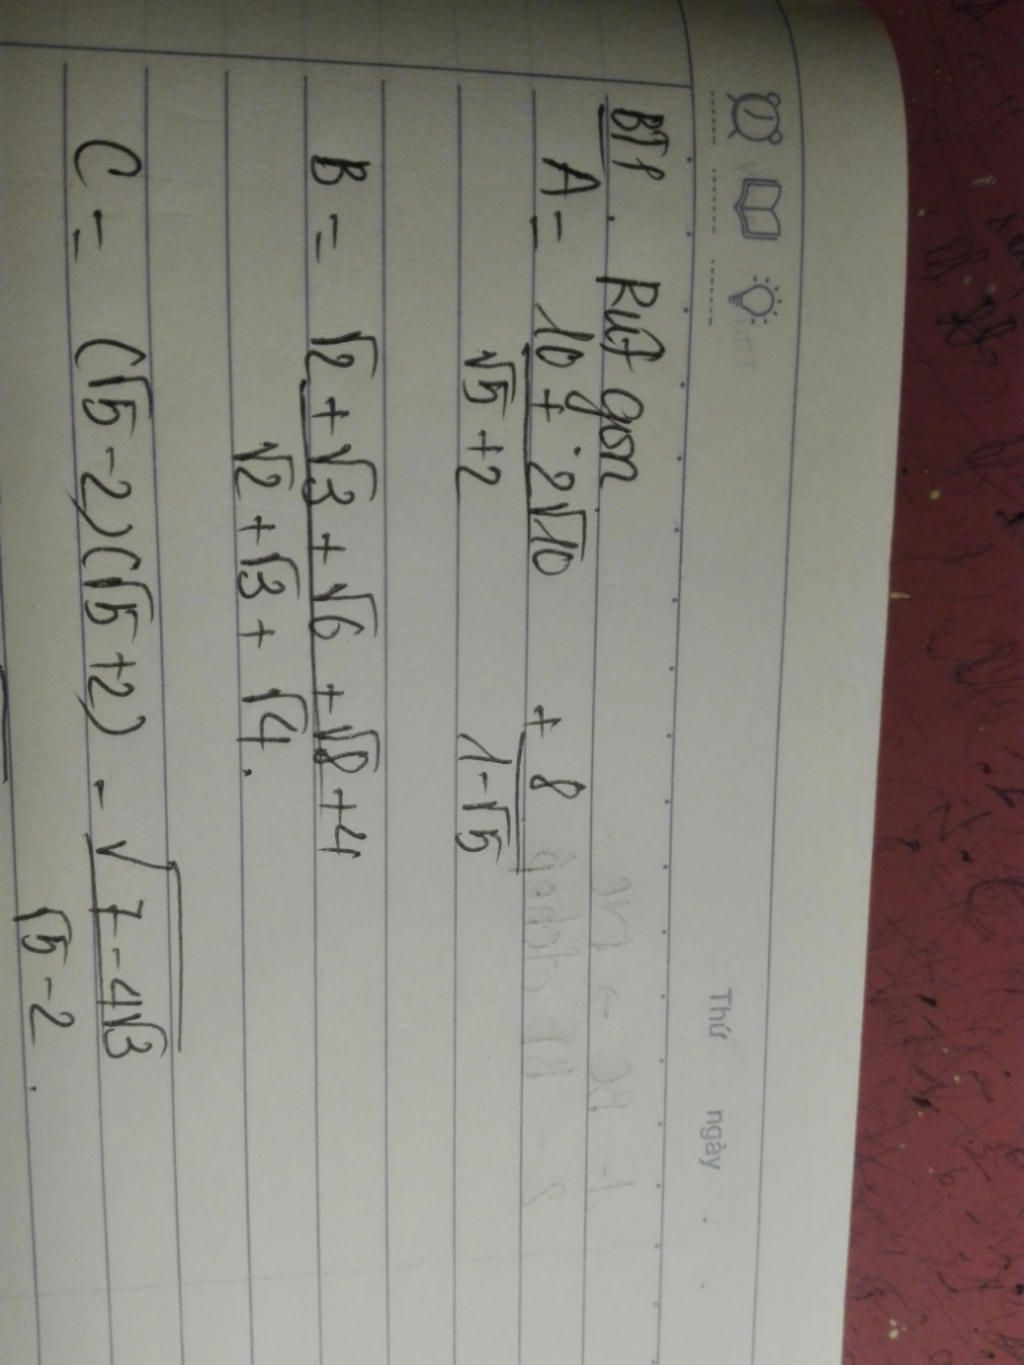 Thứ ngày
BT1. Rút gọn
A = (10 + 2√10)/(√5 + 2) + 8/(1 - √5)
B = (√2 + √3 + √6 + √8 + 4)/(√2 + √3 + √4).
C = (√5 - 2)(√5 + 2) - √(7 - 4√3)/(√5 - 2).